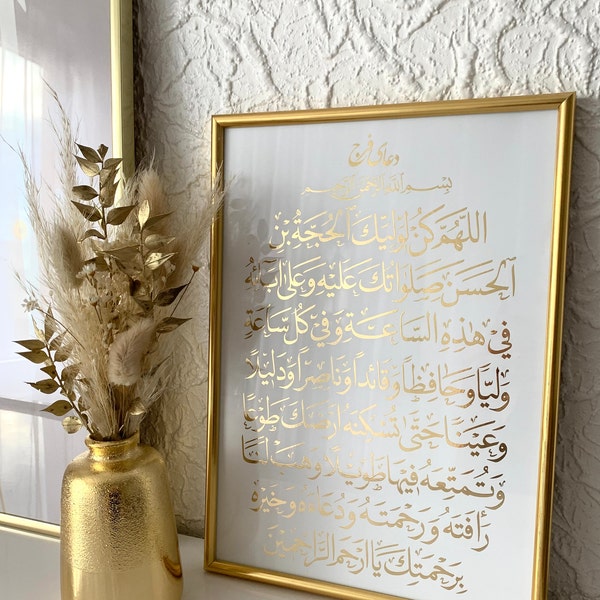 دعای فرج
بسم الله الرحمن الرحیم
اَللّٰهُمَّ كُنْ لِوَلِيِّكَ ٱلْحُجَّةِ بْنِ
ٱلْحَسَنِ صَلَوَاتُكَ عَلَيْهِ وَعَلىٰ اٰبَآئِهِ
فِي هٰذِهِ السَّاعَةِ وَفِي كُلِّ سَاعَةٍ
وَلِيًّا وَحَافِظًا وَقَائِدًا وَنَاصِرًا وَدَلِيْلًا
وَعَيْنًا حَتّٰى تُسْكِنَهُ اَرْضَكَ طَوْعًا
وَتُمَتِّعَهُ فِيهَا طَوِيْلًا وَهَبْ لَنَا
رَأْفَتَهُ وَرَحْمَتَهُ وَدُعَاءَهُ وَخَيْرَهُ
بِرَحْمَتِكَ يَا اَرْحَمَ الرَّاحِمِيْنَ